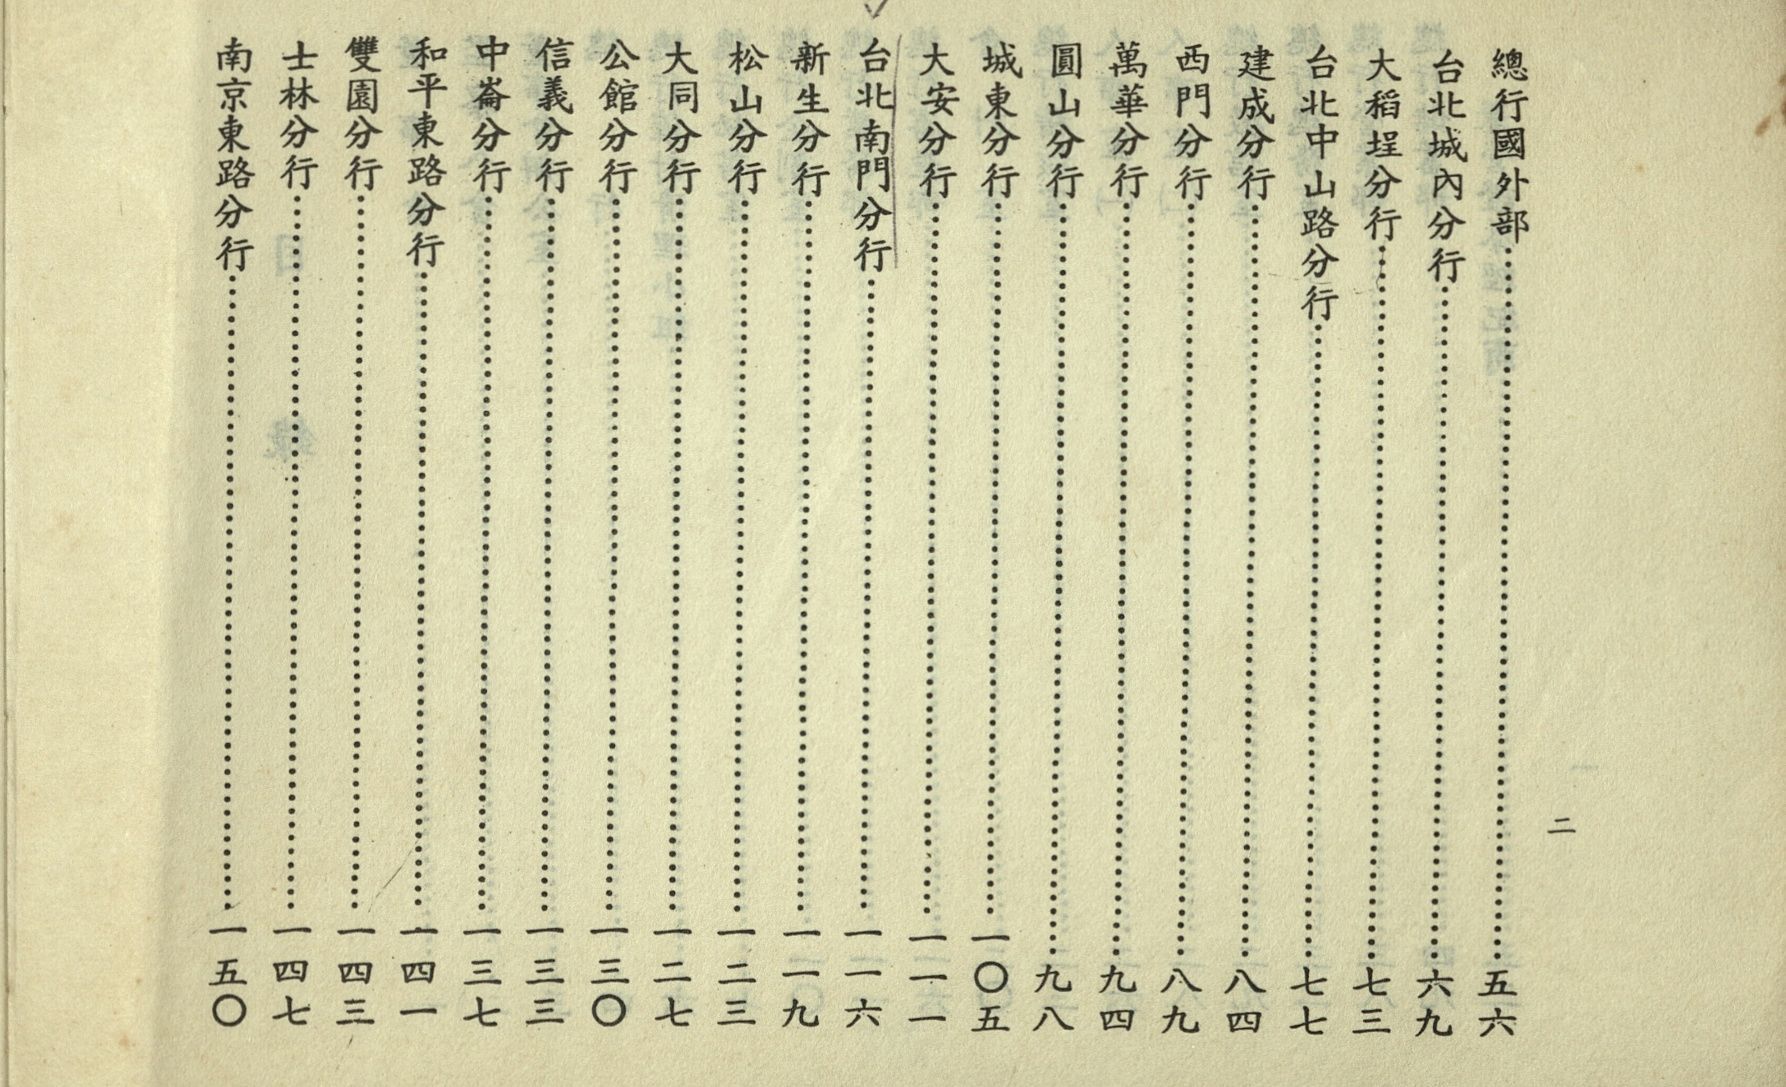 總行國外部……五六
台北城內分行……六九
大稻埕分行……七三
台北中山路分行……七七
建成分行……八四
西門分行……八九
萬華分行……九四
圓山分行……九八
城東分行……一〇五
大安分行……一一一
台北南門分行……一一六
新生分行……一一九
松山分行……一二三
大同分行……一二七
公館分行……一三〇
信義分行……一三三
中崙分行……一三七
和平東路分行……一四一
雙園分行……一四三
士林分行……一四七
南京東路分行……一五〇
二